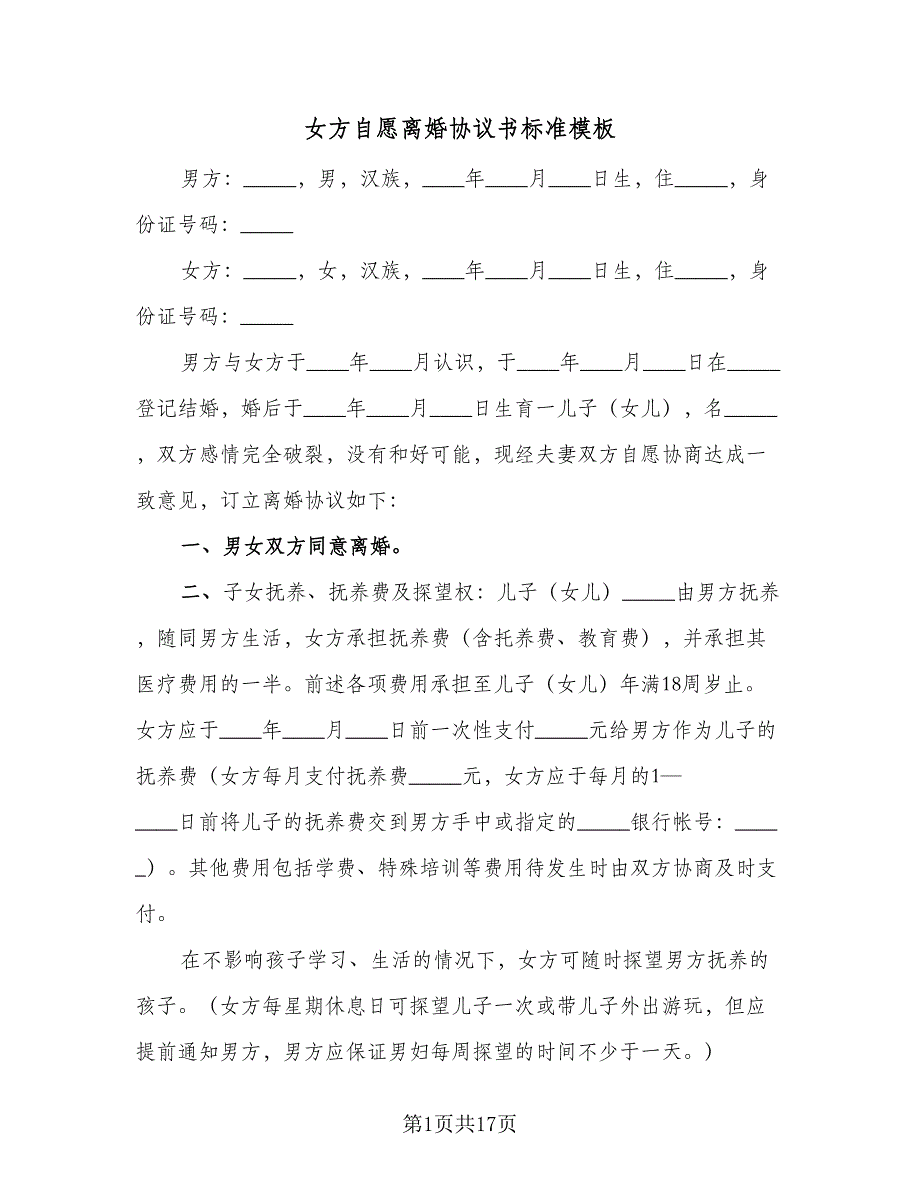 女方自愿离婚协议书标准模板
男方：_____，男，汉族，____年____月____日生，住_____，身
份证号码：_____
女方：_____，女，汉族，____年____月____日生，住_____，身
份证号码：_____
男方与女方于____年____月认识，于____年____月____日在_____
登记结婚，婚后于____年____月____日生育一儿子（女儿），名_____
，双方感情完全破裂，没有和好可能，现经夫妻双方自愿协商达成一
致意见，订立离婚协议如下：
一、男女双方同意离婚。
二、子女抚养、抚养费及探望权：儿子（女儿）_____由男方抚养
，随同男方生活，女方承担抚养费（含托养费、教育费），并承担其
医疗费用的一半。前述各项费用承担至儿子（女儿）年满18周岁止。
女方应于____年____月____日前一次性支付_____元给男方作为儿子的
抚养费（女方每月支付抚养费_____元，女方应于每月的1—
____日前将儿子的抚养费交到男方手中或指定的_____银行帐号：____
_）。其他费用包括学费、特殊培训等费用待发生时由双方协商及时支
付。
在不影响孩子学习、生活的情况下，女方可随时探望男方抚养的
孩子。（女方每星期休息日可探望儿子一次或带儿子外出游玩，但应
提前通知男方，男方应保证男妇每周探望的时间不少于一天。）
第1页共17页